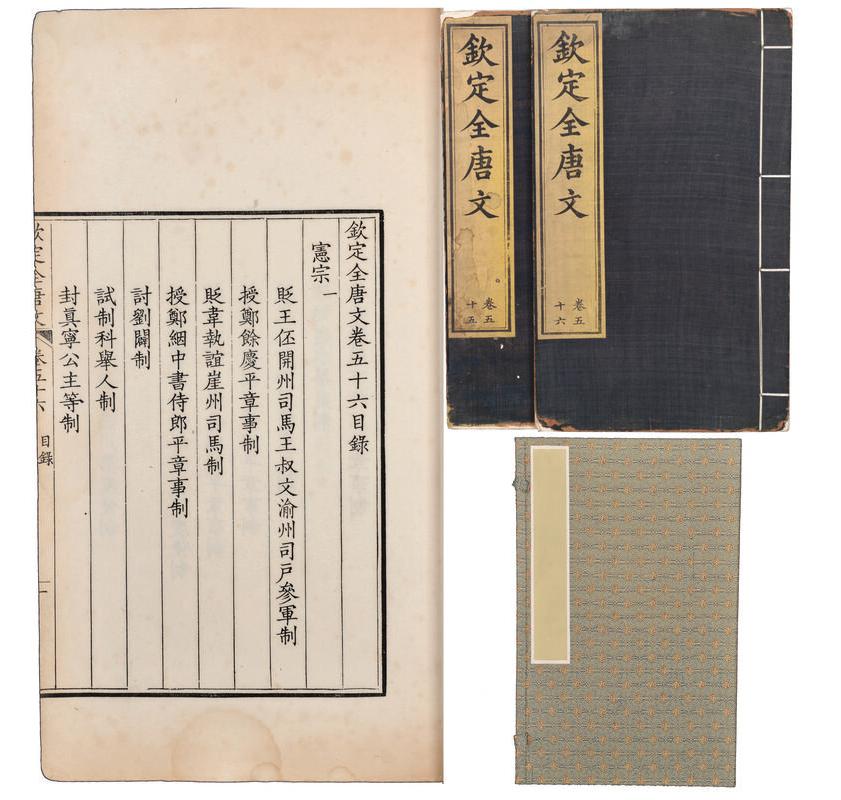 欽定全唐文卷五十六目錄
憲宗一
貶王伾開州司馬王叔文渝州司戶參軍制
授鄭餘慶平章事制
貶韋執誼崖州司馬制
授鄭絪中書侍郎平章事制
討劉闢制
試制科舉人制
封眞寧公主等制
欽定全唐文 卷五十六 目錄 一
欽定全唐文
卷五
十六
欽定全唐文
卷五
十五